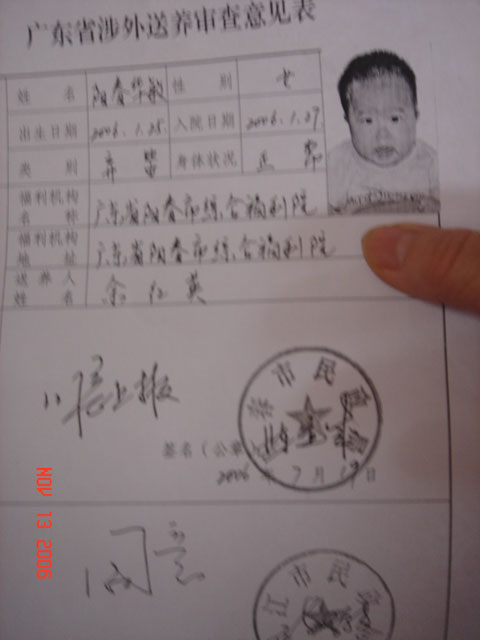 广东省涉外送养审查意见表
姓 名 阳春华敏 性 别 女
出生日期 2006.1.25. 入院日期 2006.1.27.
类 别 弃婴 身体状况 正常
福利机构名称 广东省阳春市综合福利院
福利机构地址 广东省阳春市综合福利院
送养人姓名 余红英
同意上报
市民政
签名（公章）
2006年7月19日
同意
江市民
NOV 13 2006